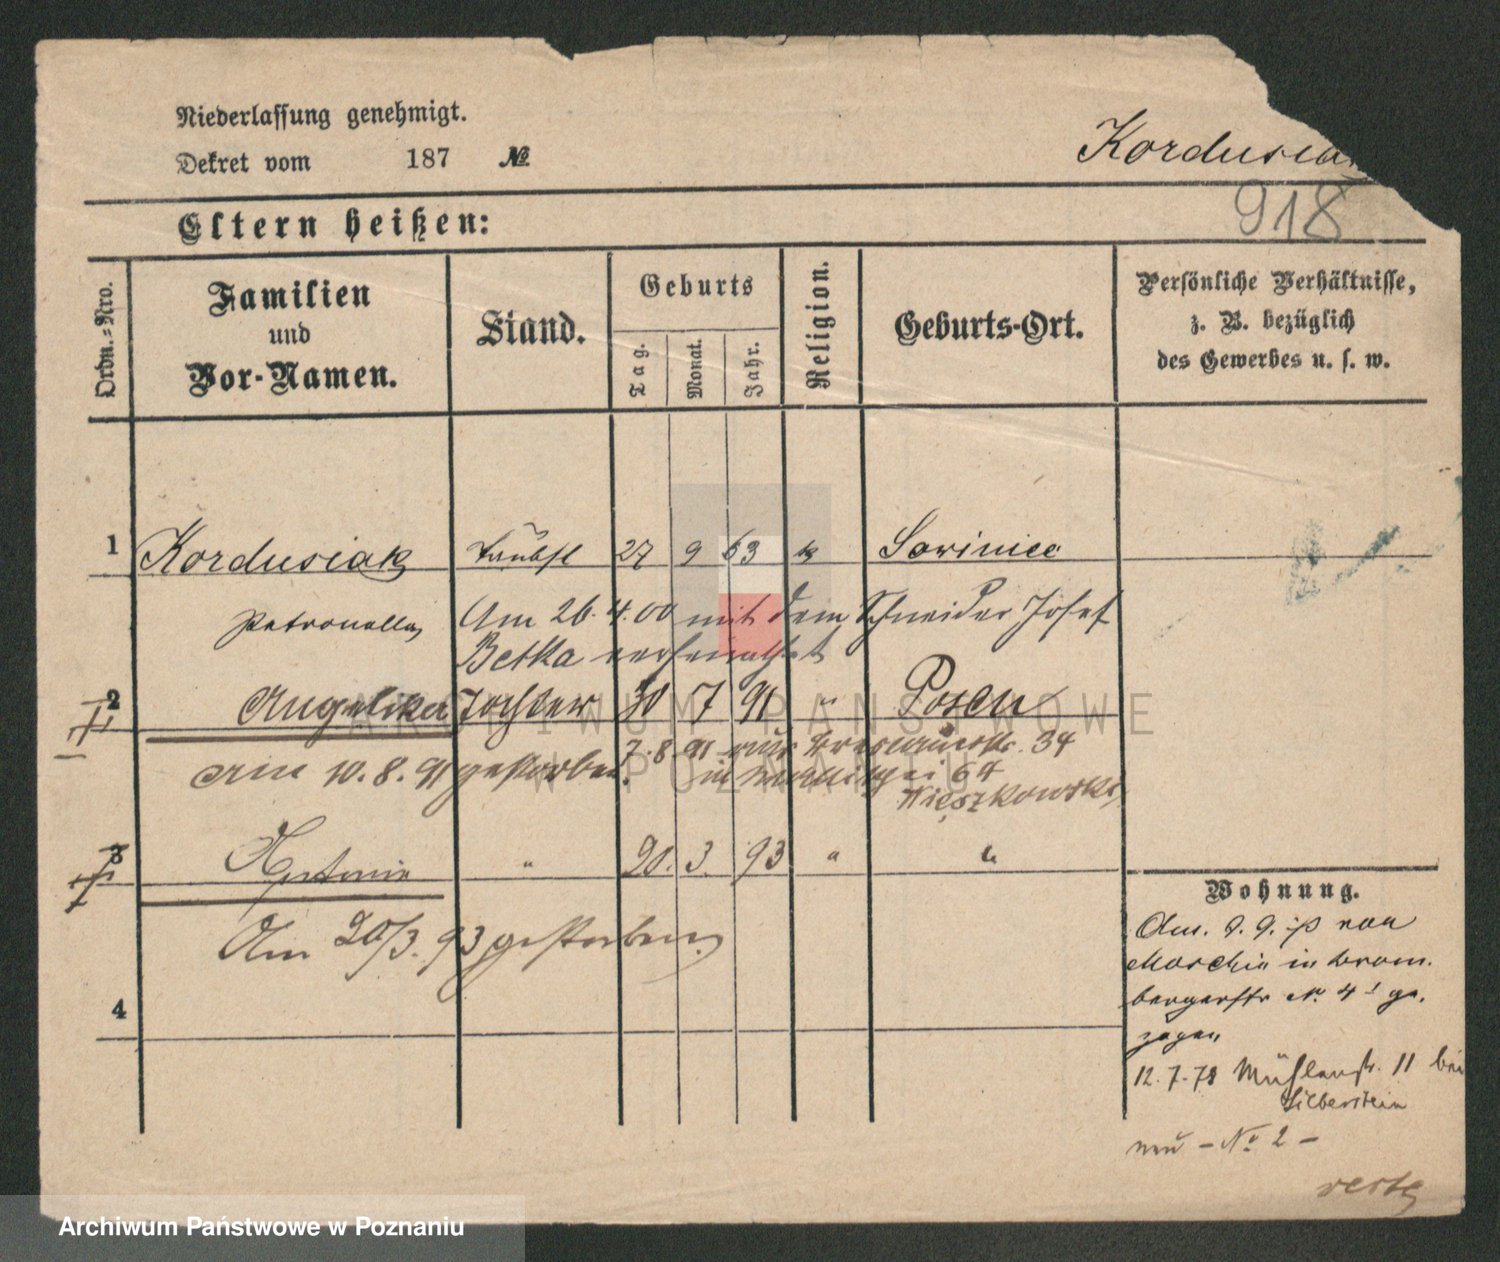 Niederlassung genehmigt.
Dekret vom 187 №
Kordusiak
918
Eltern heißen:
Ordn.-Nro.
Familien
und
Vor-Namen.
Stand.
Geburts
Tag.
Monat.
Jahr.
Religion.
Geburts-Ort.
Persönliche Verhältnisse,
z. B. bezüglich
des Gewerbes u. s. w.
1 Kordusiak 27 9 63 k Sowiniec
Petronella Am 26.4.00 mit dem Schneider Josef
Betka verheirathet
2 Angelika Tochter 30 7 91 " Posen
7.8.91 34
am 10.8.91 gestorben.
64
Wieszkowski
3 Antonie " 20. 3. 93 " "
Am 20/3.93 gestorben.
4
Wohnung.
Am. 9. 9. von
in Brom-
bergerstr № 4 ge-
zogen
12.7.78 Mühlenstr. 11 bei
Silberstein
neu - № 2 -
verte
ARCHIWUM PAŃSTWOWE
W POZNANIU
Archiwum Państwowe w Poznaniu